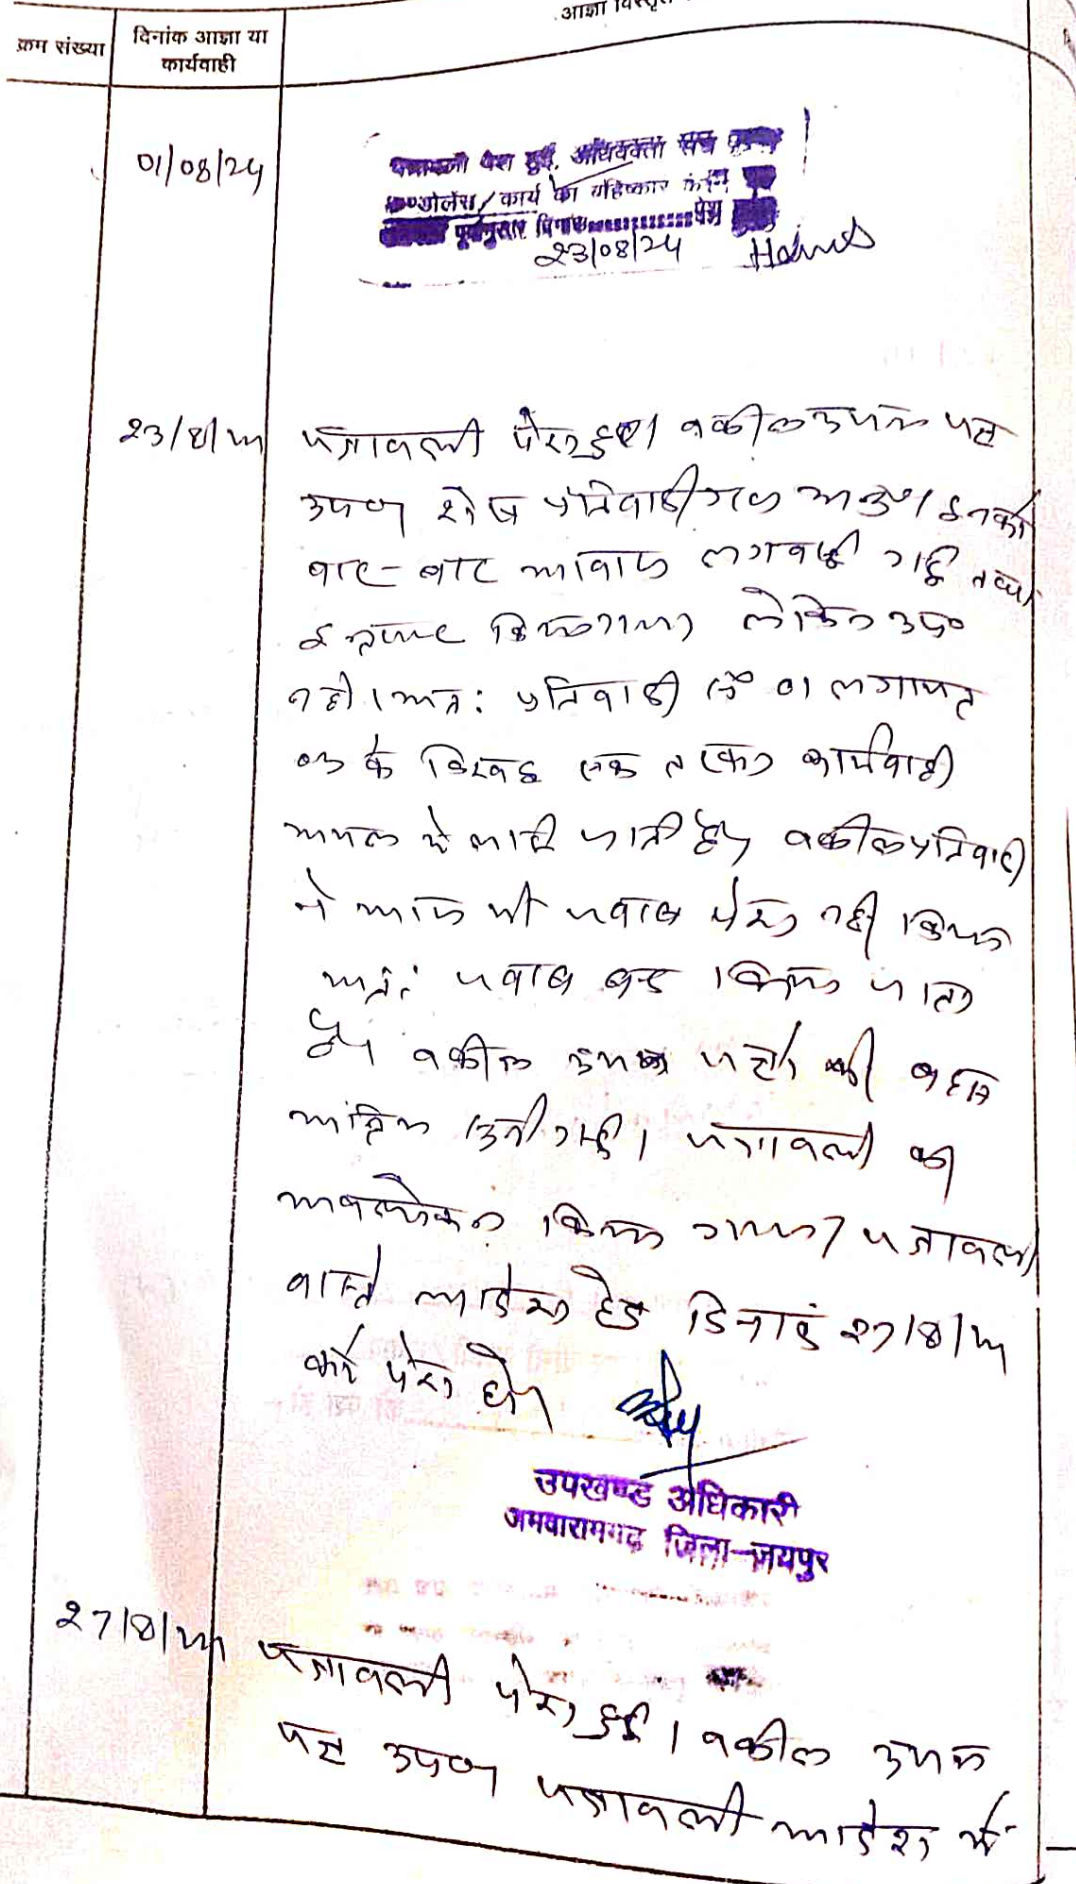 आज्ञा विस्तृत
क्रम संख्या
दिनांक आज्ञा या
कार्यवाही
01/08/24
पत्रावली पेश हुई. अभिभाषक संघ
कण्डोलेंस/कार्य का बहिष्कार
पूर्वानुसार दिनांक पेश
23/08/24
23/8/24
पत्रावली पेश हुई। वकील उभय पक्ष
उप० शेष प्रतिवादीगण अनु०। इनको
बार-बार आवाज लगवाई गई तथा
इन्तजार किया गया लेकिन उप०
नही। अतः प्रतिवादी सं० 01 लगायत
03 के विरूद्ध एक तरफा कार्यवाही
अमल मे लाई जाती है। वकील प्रतिवादी
ने आज भी जवाब पेश नही किया
अतः जवाब बन्द किया जाता
है। वकील उभय पक्षो की बहस
अंतिम सुनी गई। पत्रावली का
अवलोकन किया गया। पत्रावली
वास्ते आदेश हेतु दिनांक 27/8/24
को पेश हो।
उपखण्ड अधिकारी
जमवारामगढ़ जिला-जयपुर
27/8/24
पत्रावली पेश हुई। वकील उभय
पक्ष उप० पत्रावली आदेश मे